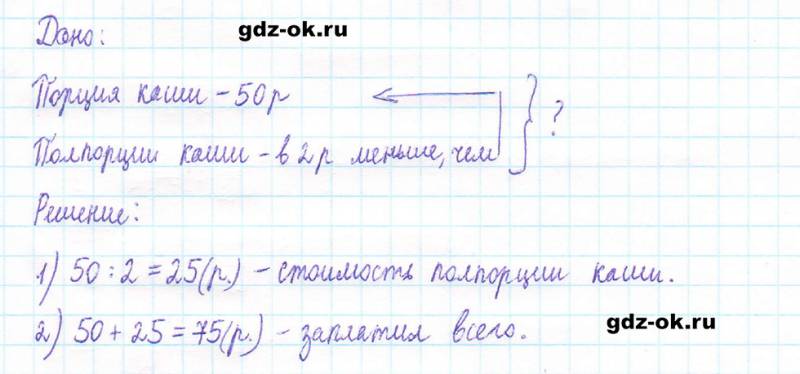 Дано:
gdz-ok.ru
Порция каши - 50 р
Полпорции каши - в 2 р меньше, чем
?
Решение:
1) 50 : 2 = 25 (р.) - стоимость полпорции каши.
2) 50 + 25 = 75 (р.) - заплатил всего.
gdz-ok.ru